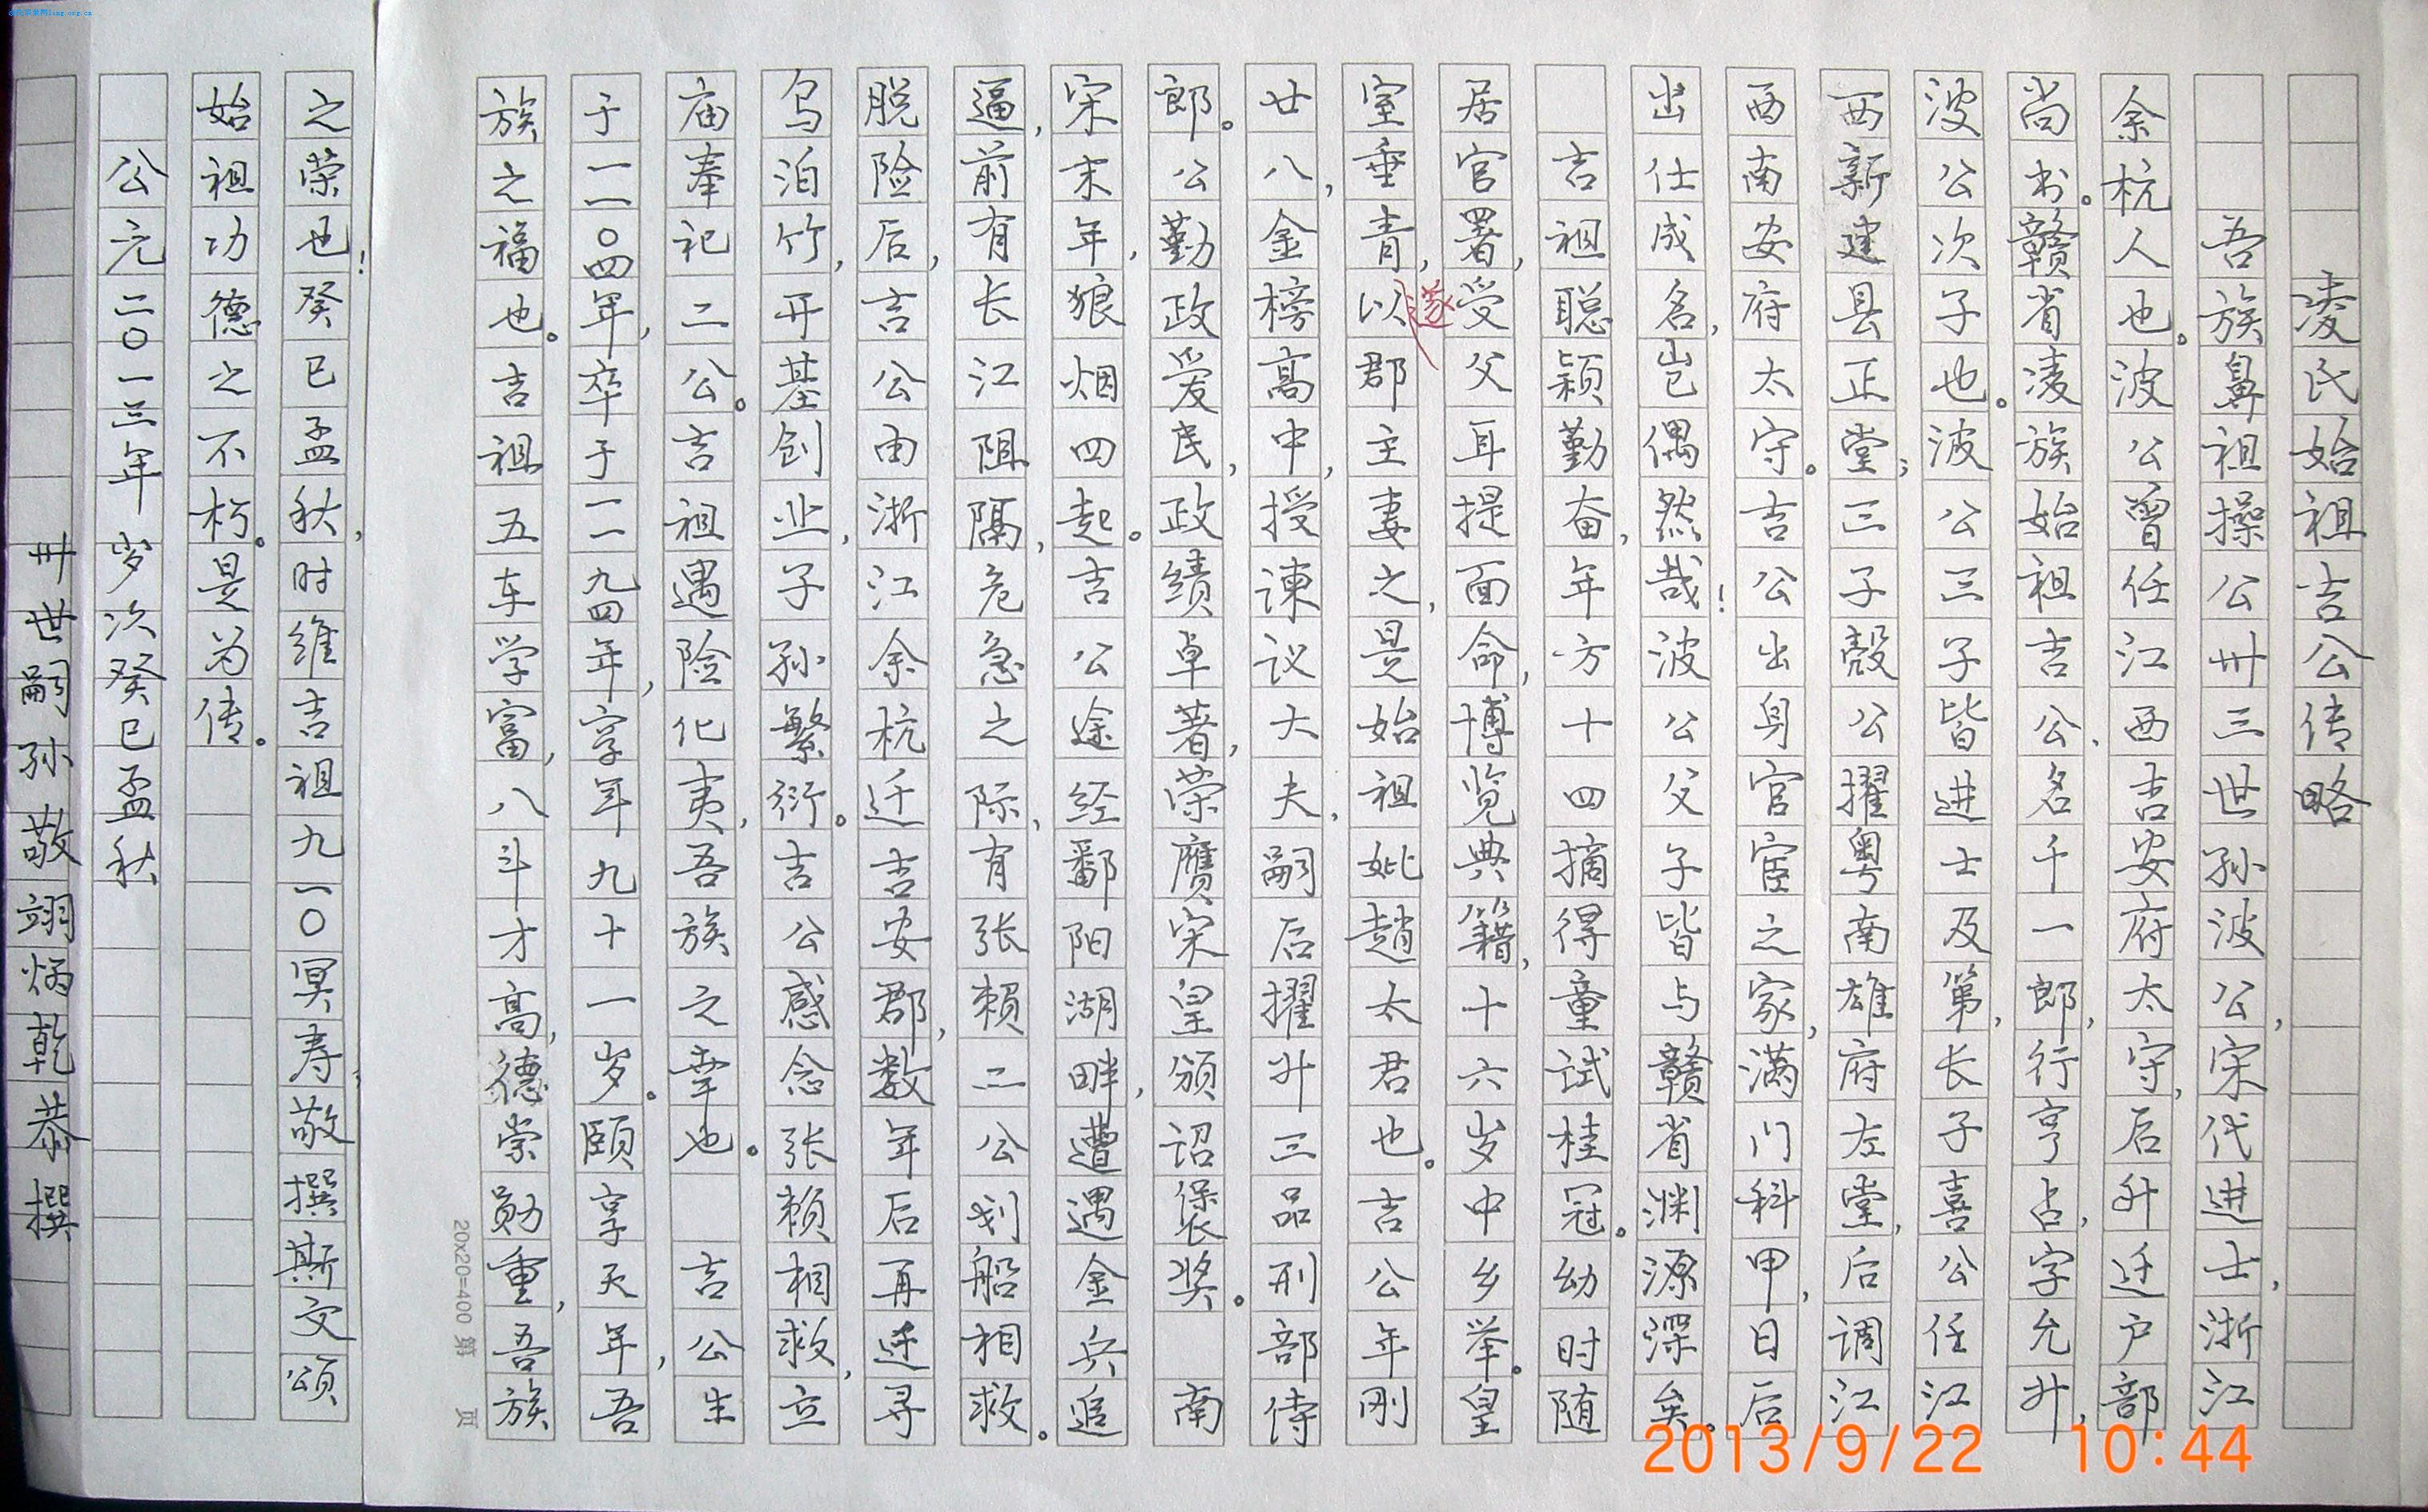 凌氏始祖吉公传略
吾族鼻祖操公卅三世孙波公,宋代进士,浙江
余杭人也。波公曾任江西吉安府太守,后升迁户部
尚书。赣省凌族始祖吉公、名千一郎,行亨占,字允升,
波公次子也。波公三子皆进士及第,长子喜公任江
西新建县正堂;三子殼公擢粤南雄府左堂,后调江
西南安府太守。吉公出身官宦之家,满门科甲,日后
出仕成名,岂偶然哉!波公父子皆与赣省渊源深矣。
吉祖聪颖勤奋,年方十四摘得童试桂冠。幼时随
居官署,受父耳提面命,博览典籍,十六岁中乡举。皇
室垂青,以郡主妻之,是始祖妣趙太君也。吉公年刚
遂
廿八,金榜高中,授谏议大夫,嗣后擢升三品刑部侍
郎。公勤政爱民,政绩卓著,荣膺宋皇颁诏褒奖。 南
宋末年,狼烟四起。吉公途经鄱阳湖畔,遭遇金兵追
逼,前有长江阻隔,危急之际,有张赖二公划船相救。
脱险后,吉公由浙江余杭迁吉安郡,数年后再迁寻
乌泊竹,开基创业,子孙繁衍。吉公感念张赖相救,立
庙奉祀二公。吉祖遇险化夷,吾族之幸也。 吉公生
于一一〇四年,卒于一一九四年,享年九十一岁。颐享天年,吾
族之福也。吉祖五车学富,八斗才高,德崇勋重,吾族
之荣也!癸巳孟秋,时维吉祖九一〇冥寿,敬撰斯文颂
始祖功德之不朽。是为传。
公元二〇一三年岁次癸巳孟秋
卅世嗣孙敬翊炳乾恭撰
20×20=400 第 页
2013/9/22 10:44